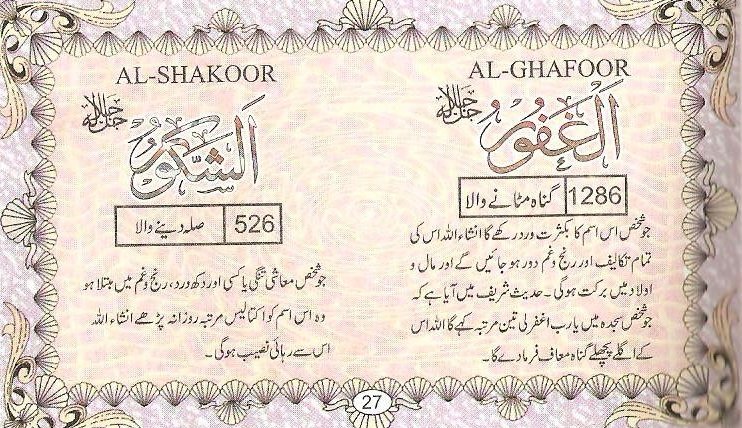 AL-GHAFOOR
جل جلالہ
اَلْغَفُوْرُ
1286 گناہ مٹانے والا
جو شخص اس اسم کا بکثرت ورد رکھے گا انشاء اللہ اس کی
تمام تکالیف اور رنج و غم دور ہو جائیں گے اور مال و
اولاد میں برکت ہوگی۔ حدیث شریف میں آیا ہے کہ
جو شخص سجدہ میں یارب اغفرلی تین مرتبہ کہے گا اللہ اس
کے اگلے پچھلے گناہ معاف فرما دے گا۔
AL-SHAKOOR
جل جلالہ
اَلشَّكُوْرُ
526 صلہ دینے والا
جو شخص معاشی تنگی یا کسی اور دکھ درد، رنج و غم میں مبتلا ہو
وہ اس اسم کو اکتالیس مرتبہ روزانہ پڑھے انشاء اللہ
اس سے رہائی نصیب ہوگی۔
27